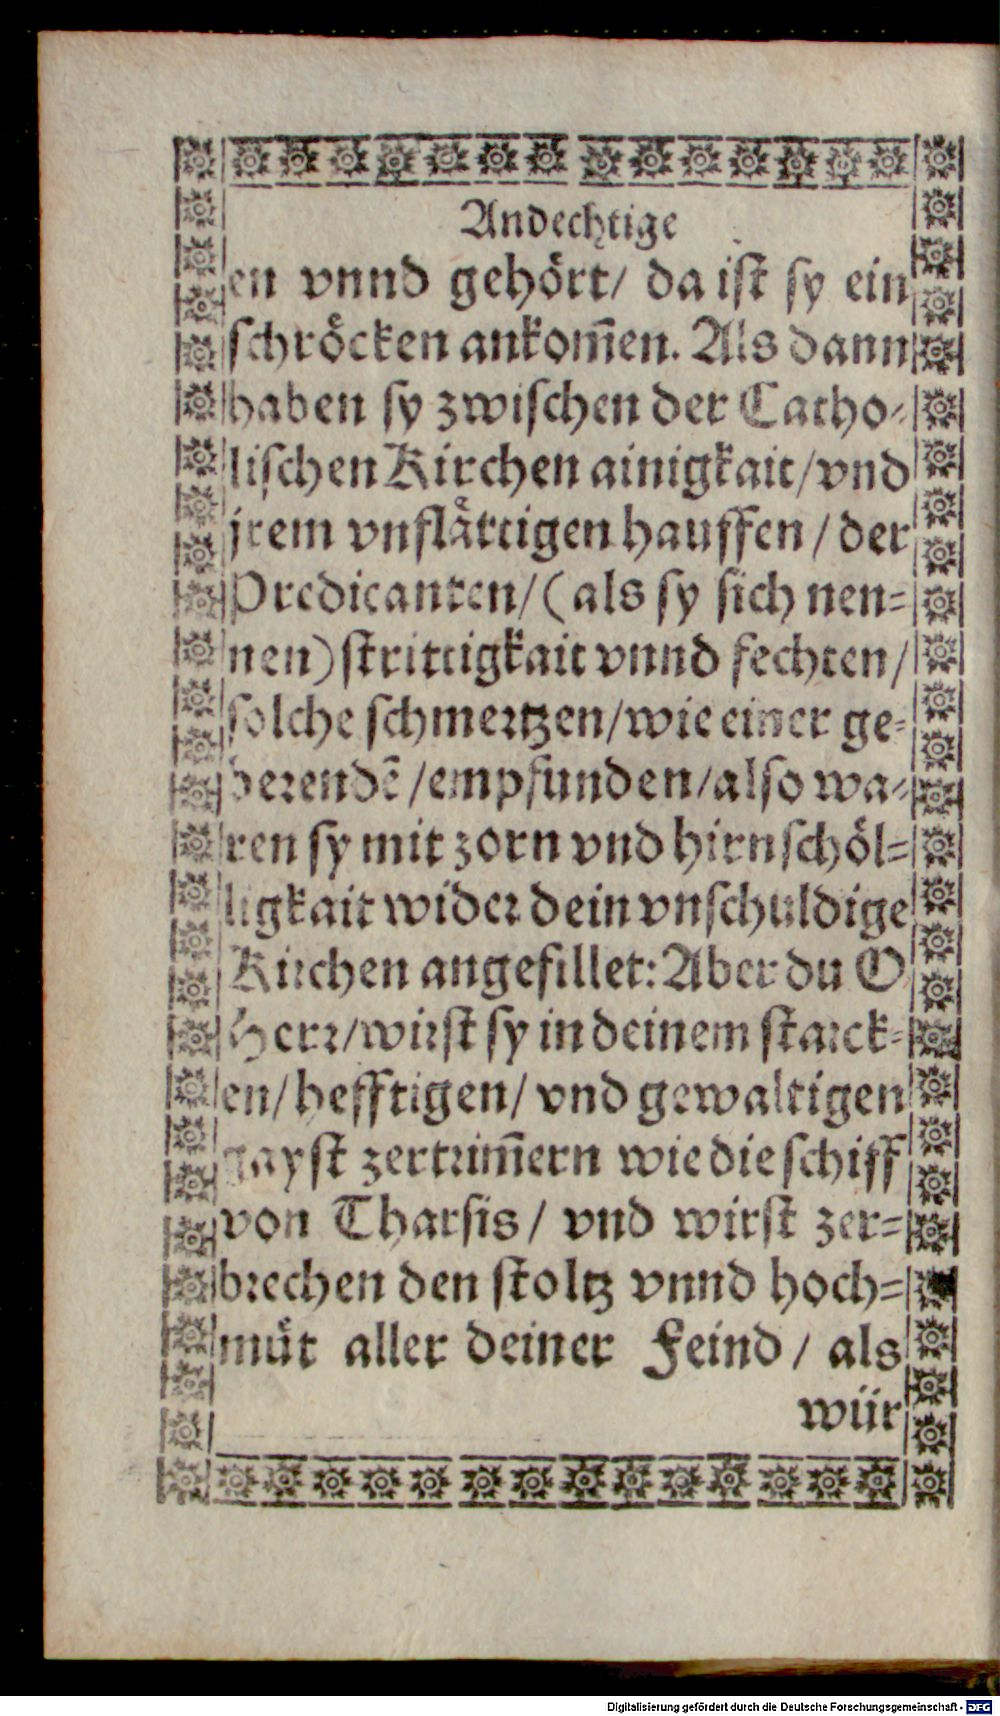 Andechtige
en vnnd gehört/ da ist sy ein
schröcken ankom̃en. Als dann
haben sy zwischen der Catho-
lischen Kirchen ainigkait/vnd
jrem vnflåttigen hauffen / der
Predicanten/(als sy sich nen-
nen)strittigkait vnnd fechten/
solche schmertzen/wie einer ge-
berendẽ /empfunden/also wa-
ren sy mit zorn vnd hirnschöl-
ligkait wider dein vnschuldige
Kirchen angefillet: Aber du O
Herr/wirst sy in deinem starck-
en/hefftigen/ vnd gewaltigen
gayst zertrim̃ern wie die schiff
von Tharsis/ vnd wirst zer-
brechen den stoltz vnnd hoch-
mut aller deiner Feind/ als
wür
Digitalisierung gefördert durch die Deutsche Forschungsgemeinschaft - DFG